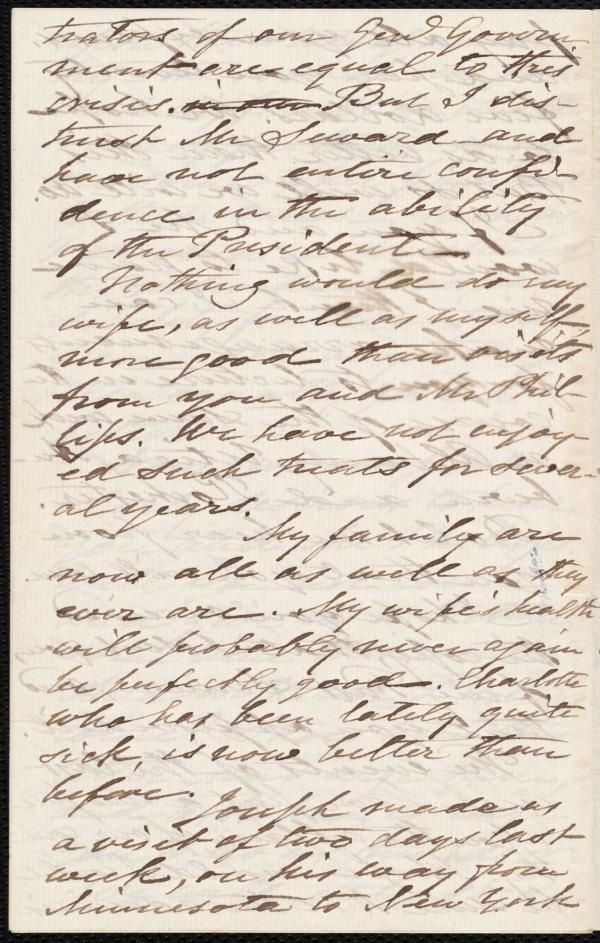 trators of our Genl Govern
ment are equal to this
crisis. But I dis-
trust Mr Seward and
have not entire confi-
dence in the ability
of the President.
Nothing would do my
wife, as well as myself,
more good than visits
from you and Mr Phil-
lips. We have not enjoy-
ed such treats for sever-
al years.
My family are
now all as well as they
ever are. My wife's health
will probably never again
be perfectly good. Charlotte
who has been lately quite
sick, is now better than
before.
Joseph made us
a visit of two days last
week, on his way from
Minnesota to New York